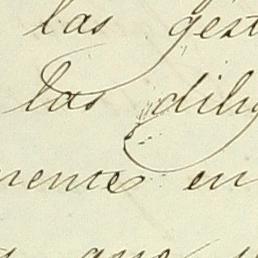 las gest
las dilig
mente en
que